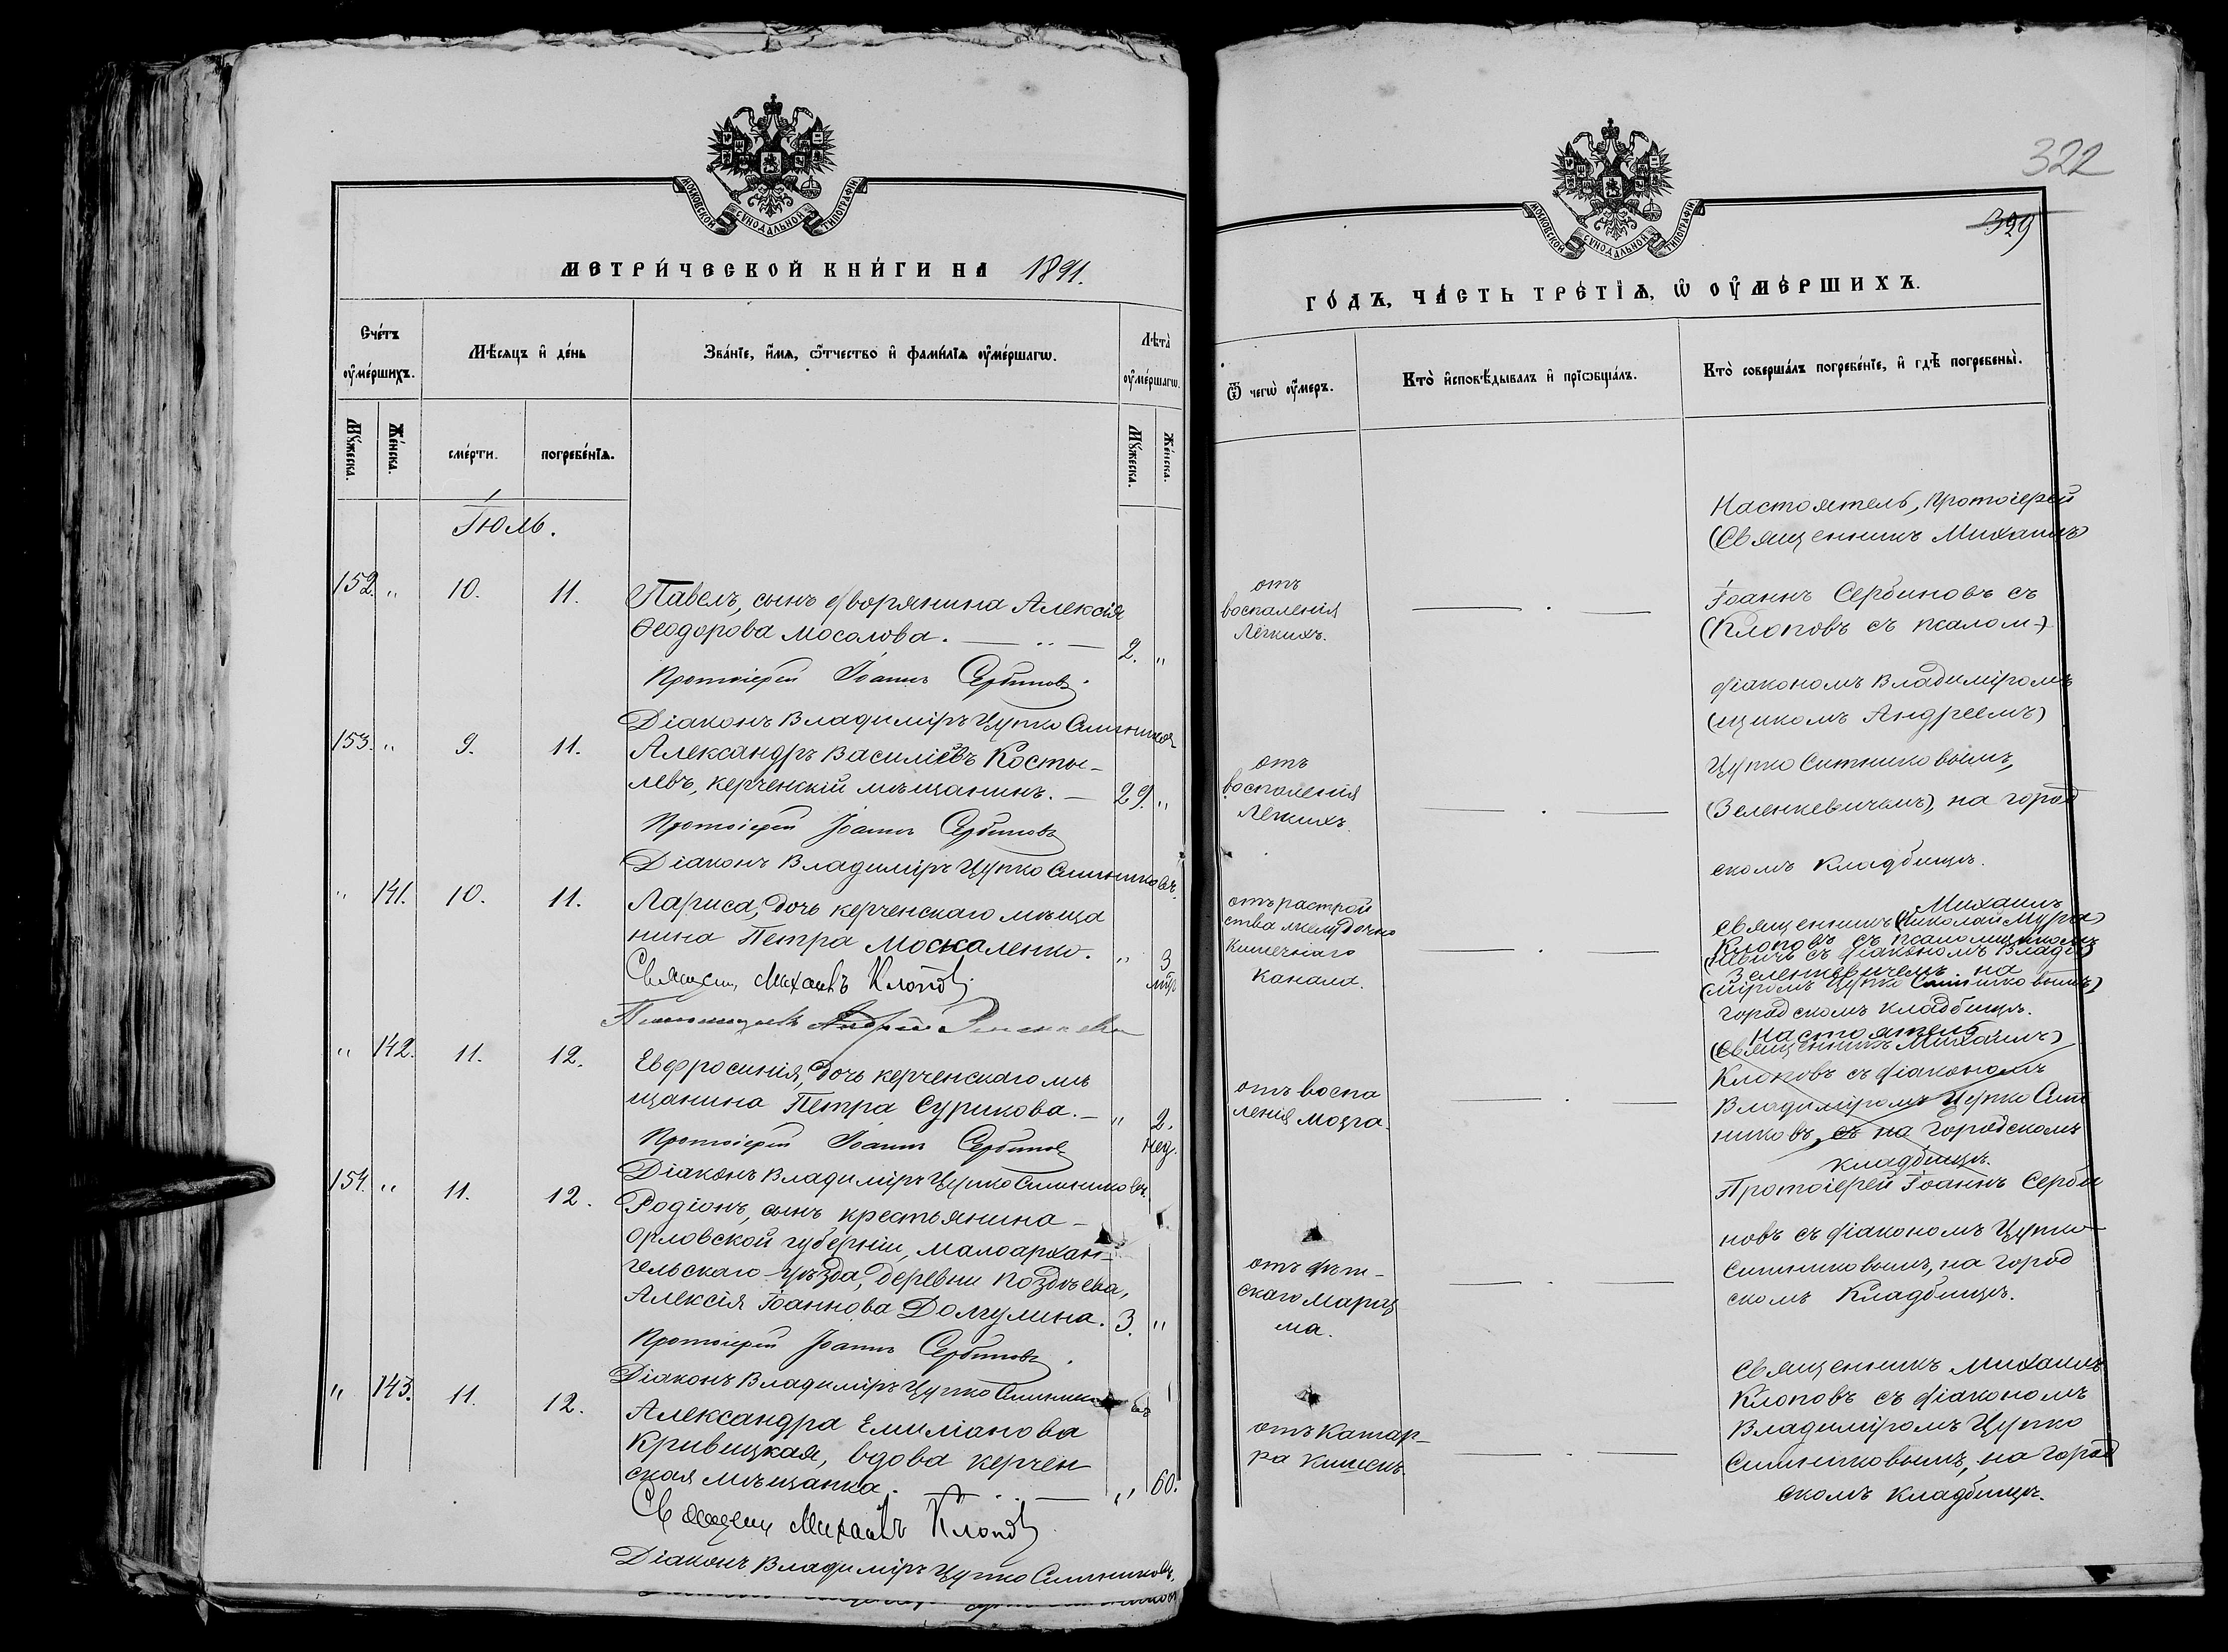 МОСКОВСКОЙ СѴНОДАЛЬНОЙ ТИПОГРАФІИ
МЕТРИ́ЧЕСКОЙ КНИ́ГИ НА 1891.
Сче́тъ оу҆ме́ршихъ.
Мѣ́сяцъ и҆ де́нь
Зва́нїе, и҆́мя, ѻ҆́тчество и҆ фами́лїя оу҆ме́ршагѡ.
Лѣта̀ оу҆ме́ршагѡ.
Мꙋ́жеска.
Же́нска.
сме́рти.
погребе́нїѧ.
Мꙋ́жеска.
Же́нска.
Іюль.
152. „ 10. 11. Павелъ, сынъ дворянина Алексія
Ѳеодорова Мосолова. — „ — 2. „
Протоіерей Іоаннъ Сербиновъ.
Діаконъ Владиміръ Цупко Ситниковъ
153. „ 9. 11. Александръ Василіевъ Косты-
левъ, керченскій мѣщанинъ. — 29. „
Протоіерей Іоаннъ Сербиновъ
Діаконъ Владиміръ Цупко Ситниковъ.
„ 141. 10. 11. Лариса, дочь керченскаго мѣща
нина Петра Москаленко. „ 3
Священ. Михаилъ Клоповъ.
Псаломщикъ Андрей
„ 142. 11. 12. Евфросинія, дочь керченскаго мѣ
щанина Петра Сурикова. — „ 2.
Протоіерей Іоаннъ Сербиновъ нед.
Діаконъ Владиміръ Цупко Ситниковъ.
154. „ 11. 12. Родіонъ, сынъ крестьянина —
Орловской губерніи, Малоархан-
гельскаго уѣзда, деревни Поздѣева,
Алексія Іоаннова Долгулина. 3. „
Протоіерей Іоаннъ Сербиновъ.
Діаконъ Владиміръ Цупко Ситниковъ
„ 143. 11. 12. Александра Емиліанова
Кривицкая, вдова керчен
ская мѣщанка. — „ 60.
Священ Михаилъ Клоповъ
Діаконъ Владиміръ Цупко Ситниковъ.
322
329
МОСКОВСКОЙ СѴНОДАЛЬНОЙ ТИПОГРАФІИ
ГО́ДЪ, ЧА́СТЬ ТРЕ́ТЇѦ, Ѡ҆ ОУ҆МЕ́РШИХЪ.
Ѿ чегѡ̀ оу҆́мєръ.
Кто̀ и҆сповѣ́дывалъ и҆ прїѡбща́лъ.
Кто̀ соверша́лъ погребе́нїе, и҆ гдѣ̀ погребены̀.
отъ
воспаленія
легкихъ.
Настоятель, Протоіерей
(Священникъ Михаилъ)
Іоаннъ Сербиновъ съ
(Клоповъ съ псалом-)
діакономъ Владиміромъ
(щикомъ Андреемъ)
отъ
воспаленія
легкихъ.
Цупко Ситниковымъ,
(Зеленкевичемъ), на город
скомъ кладбищѣ.
отъ растрой
ства желудочно
кишечнаго
канала.
Михаилъ
Священникъ (Николай Мура)
Клоповъ съ псаломщикомъ
(невичъ съ діакономъ Влади)
Зеленкевичемъ. на
(міромъ Цупко Ситниковымъ)
городскомъ кладбищѣ.
отъ воспа
ленія мозга.
Настоятель
(Священникъ Михаилъ)
Клоповъ съ діакономъ
Владиміромъ Цупко Сит
никовъ, съ на городскомъ
кладбищѣ.
отъ дѣт-
скаго мараз
ма.
Протоіерей Іоаннъ Серби
новъ съ діакономъ Цупко-
Ситниковымъ, на город
скомъ кладбищѣ.
отъ катар-
ра кишекъ.
Священникъ Михаилъ
Клоповъ съ діакономъ
Владиміромъ Цупко
Ситниковымъ, на город
скомъ кладбищѣ.